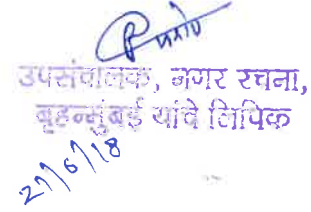 उपसंचालक, नगर रचना,
बृहन्मुंबई यांचे लिपिक
27/6/18